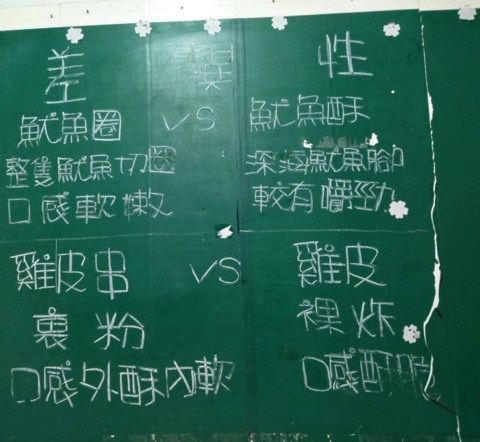 差異性
魷魚圈 VS 魷魚酥
整隻魷魚切圈 深海魷魚腳
口感軟嫩 較有嚼勁
雞皮串 VS 雞皮
裹粉 裸炸
口感外酥內軟 口感酥脆